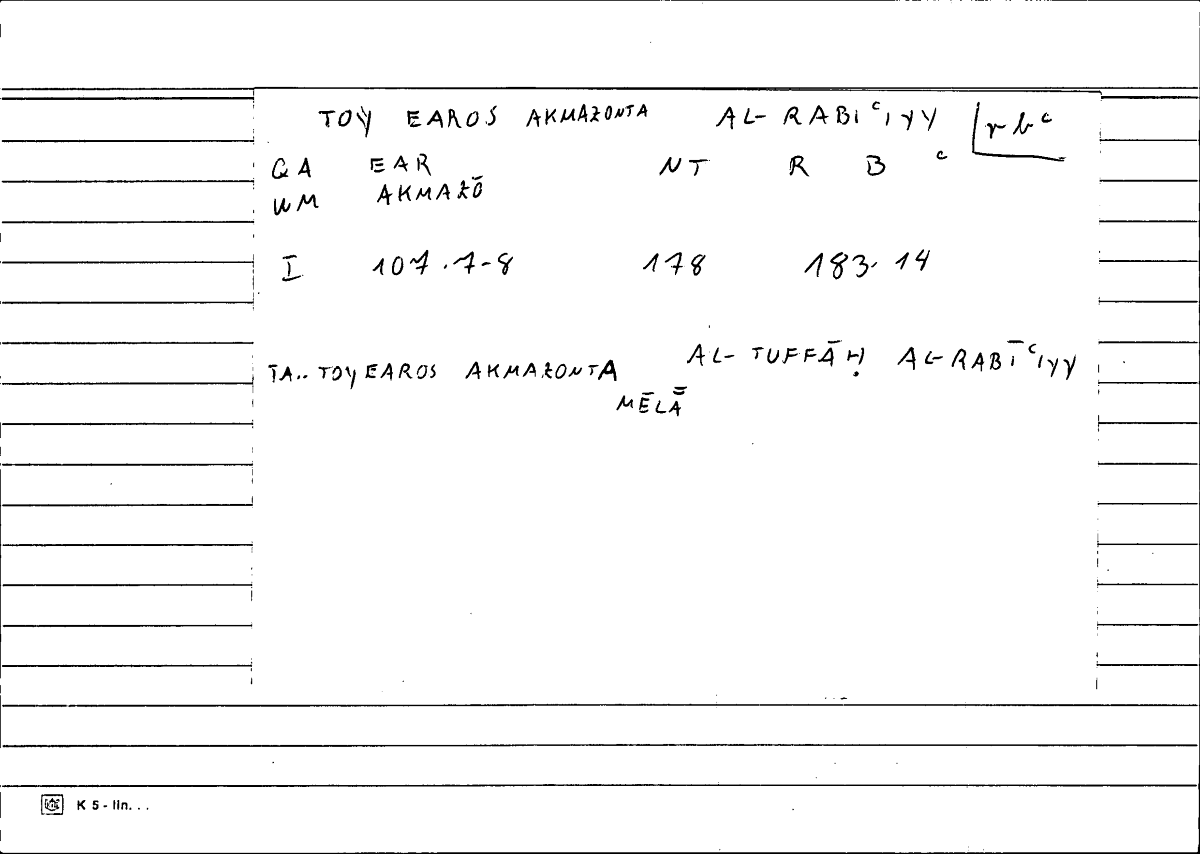 TOY EAROS AKMAZONTA AL-RABIᶜIYY rbᶜ
GA EAR NT R B ᶜ
WM AKMAZŌ
I 107.7-8 178 183.14
TA.. TOY EAROS AKMAZONTA AL-TUFFĀḤ AL-RABĪᶜIYY
MĒLĀ
K 5 - lin. . .